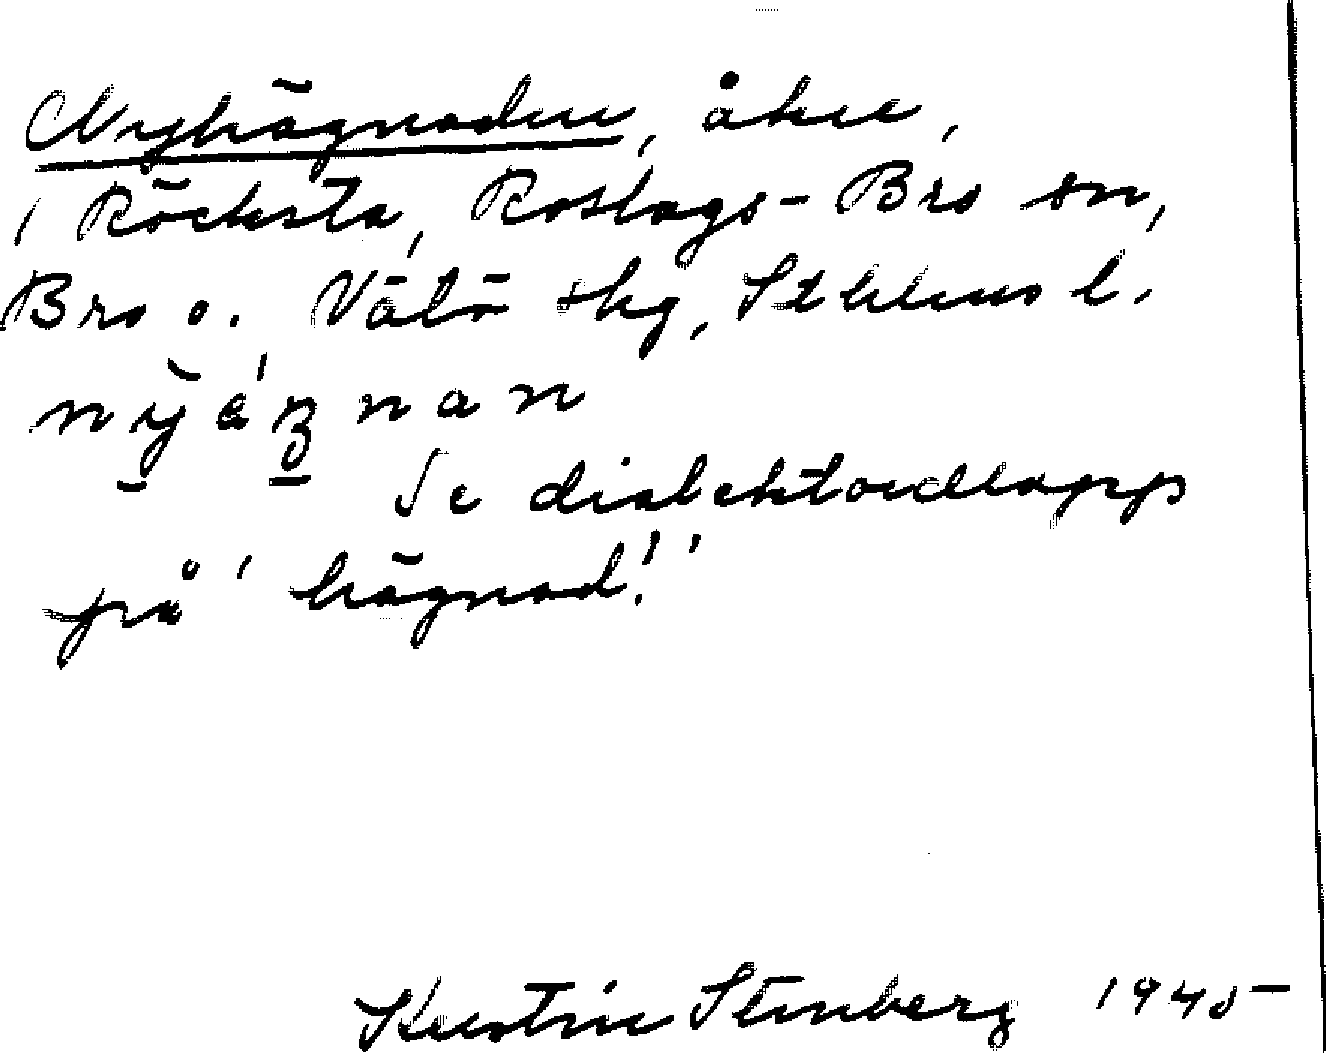 Nyhägnaden, åker,
i Röcksta, Roslags-Bro sn,
Bro o. Vätö skg, Sthlms l.
Se dialektordlapp
på 'hägnad'!
Kerstin Stenberg 1945